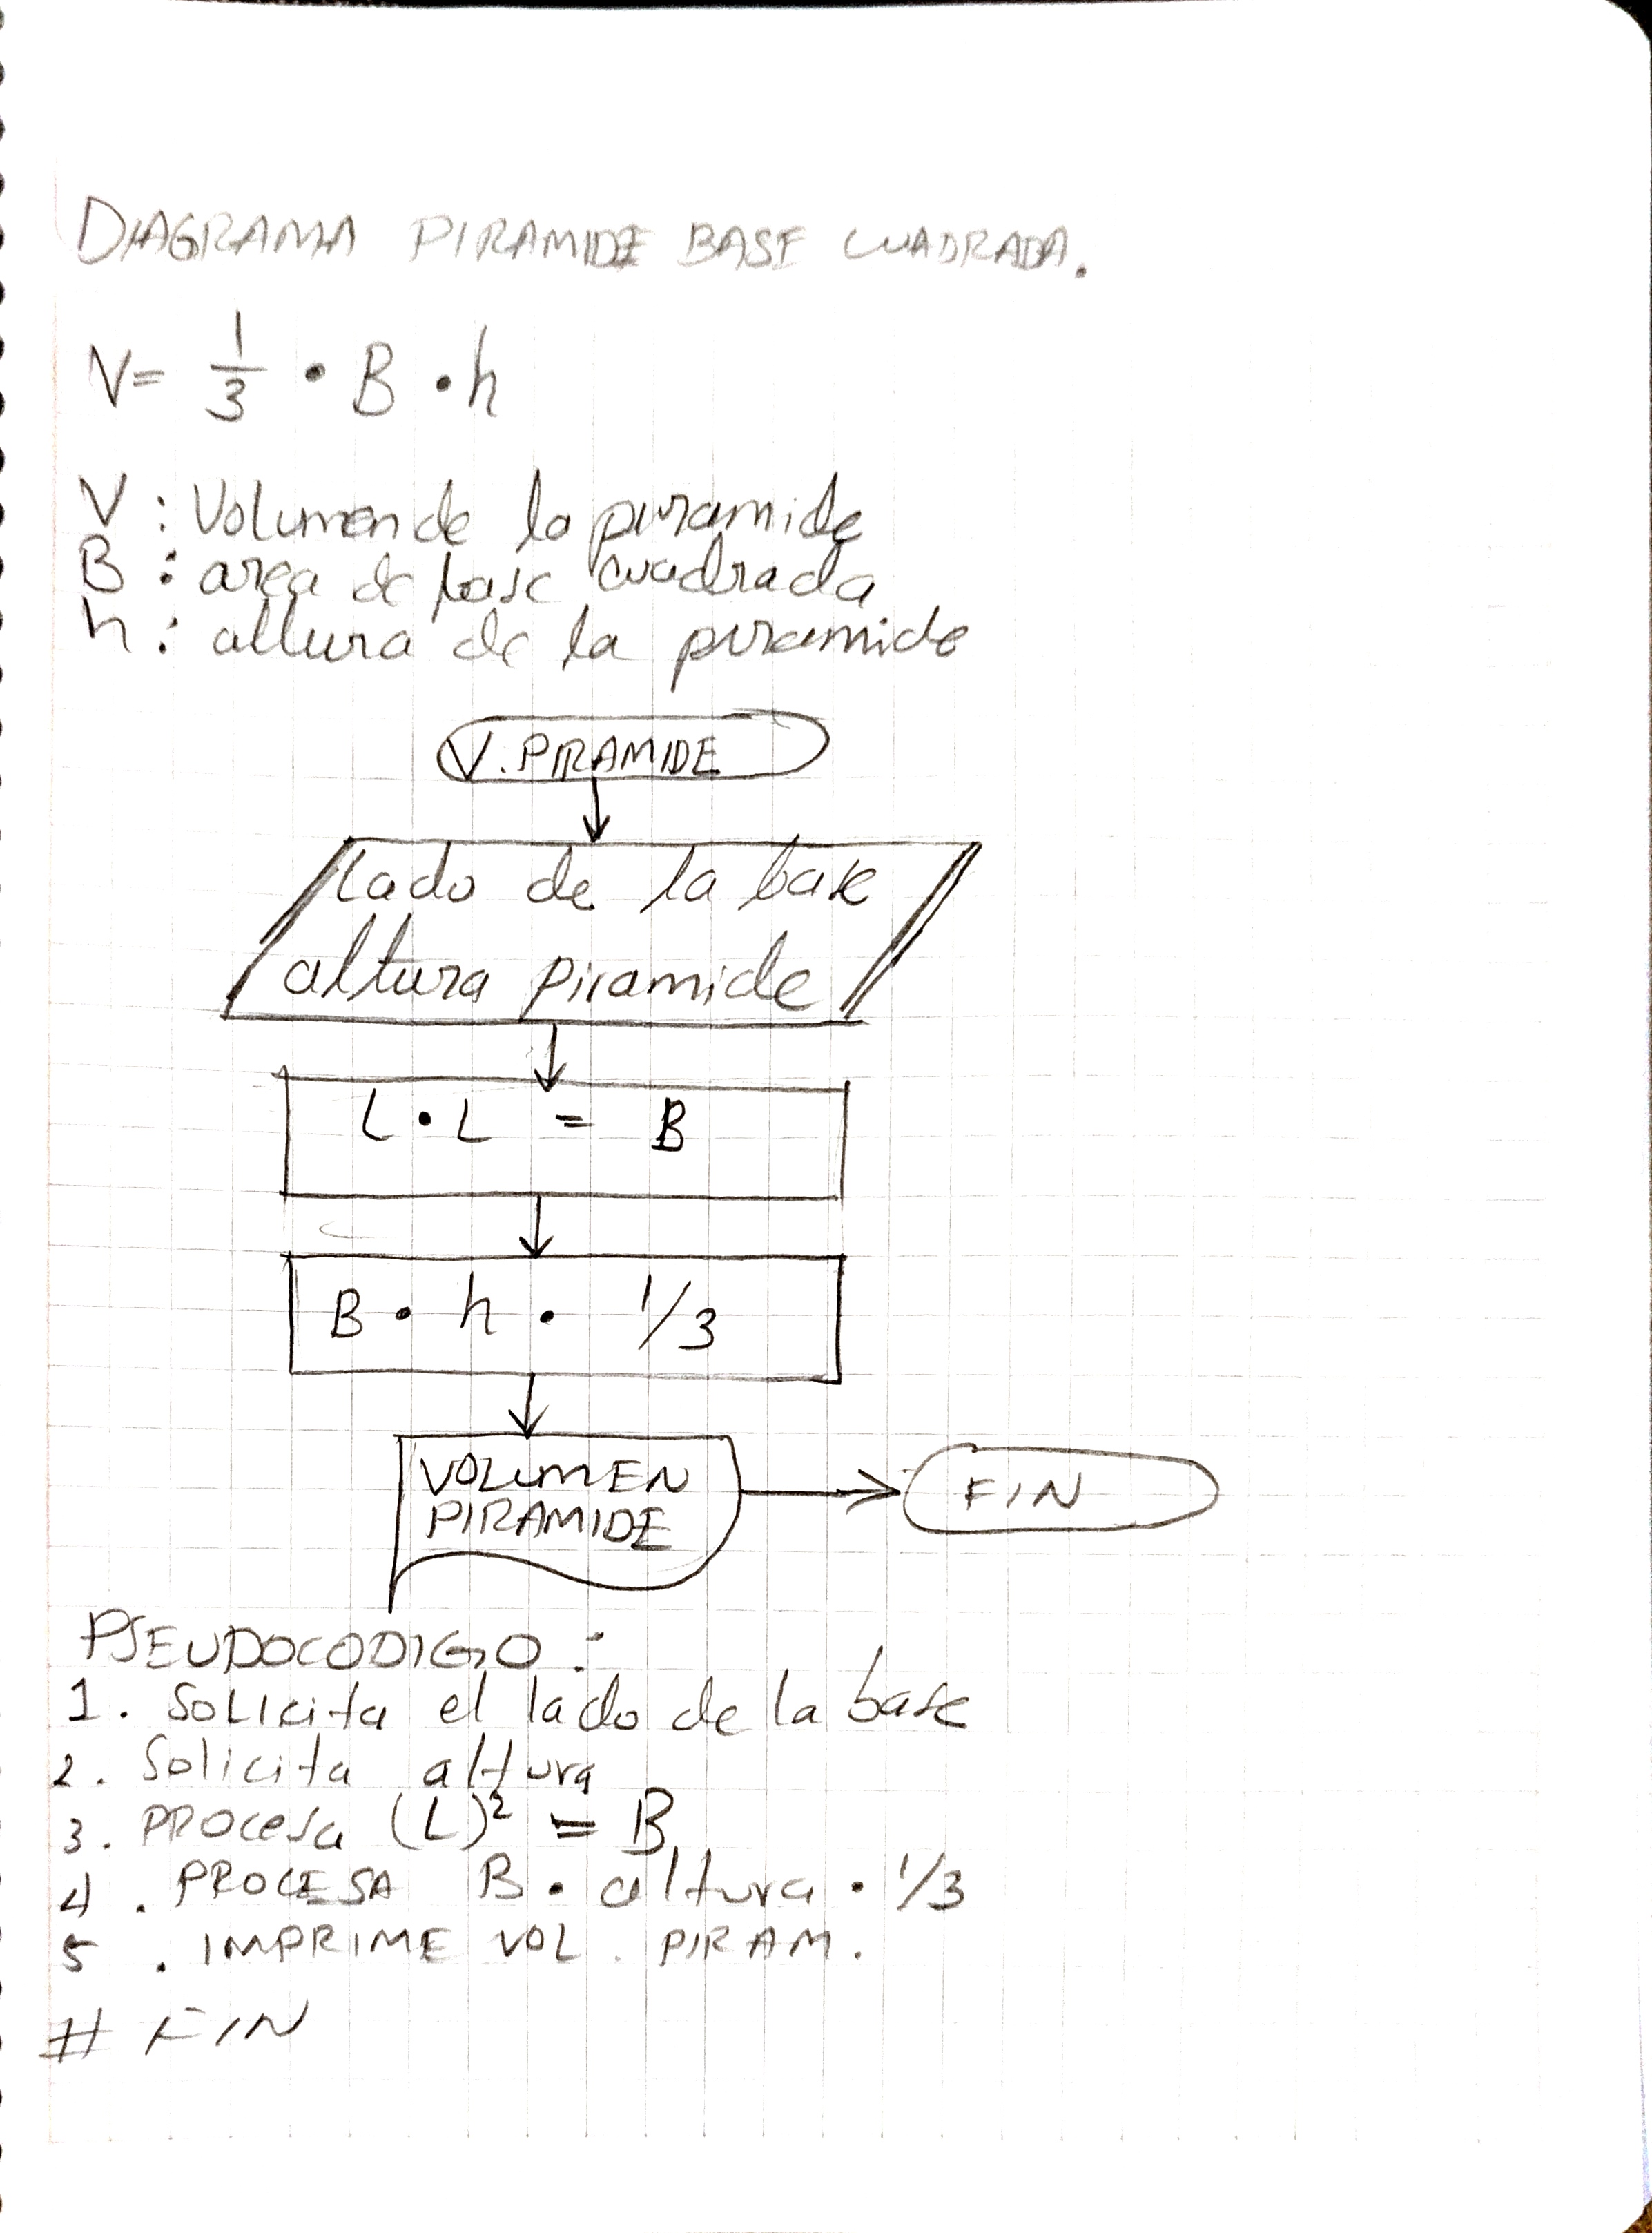 DIAGRAMA PIRAMIDE BASE CUADRADA.
V= 1/3 • B • h
V : Volumen de la piramide
B : area de base cuadrada
h : altura de la piramide
V. PIRAMIDE
Lado de la base
altura piramide
L • L = B
B • h • 1/3
VOLUMEN
PIRAMIDE
FIN
PSEUDOCODIGO :
1. SOLIcita el lado de la base
2. Solicita altura
3. PROcesa (L)² = B
4. PROCESA B • altura • 1/3
5. IMPRIME VOL. PIRAM.
# FIN